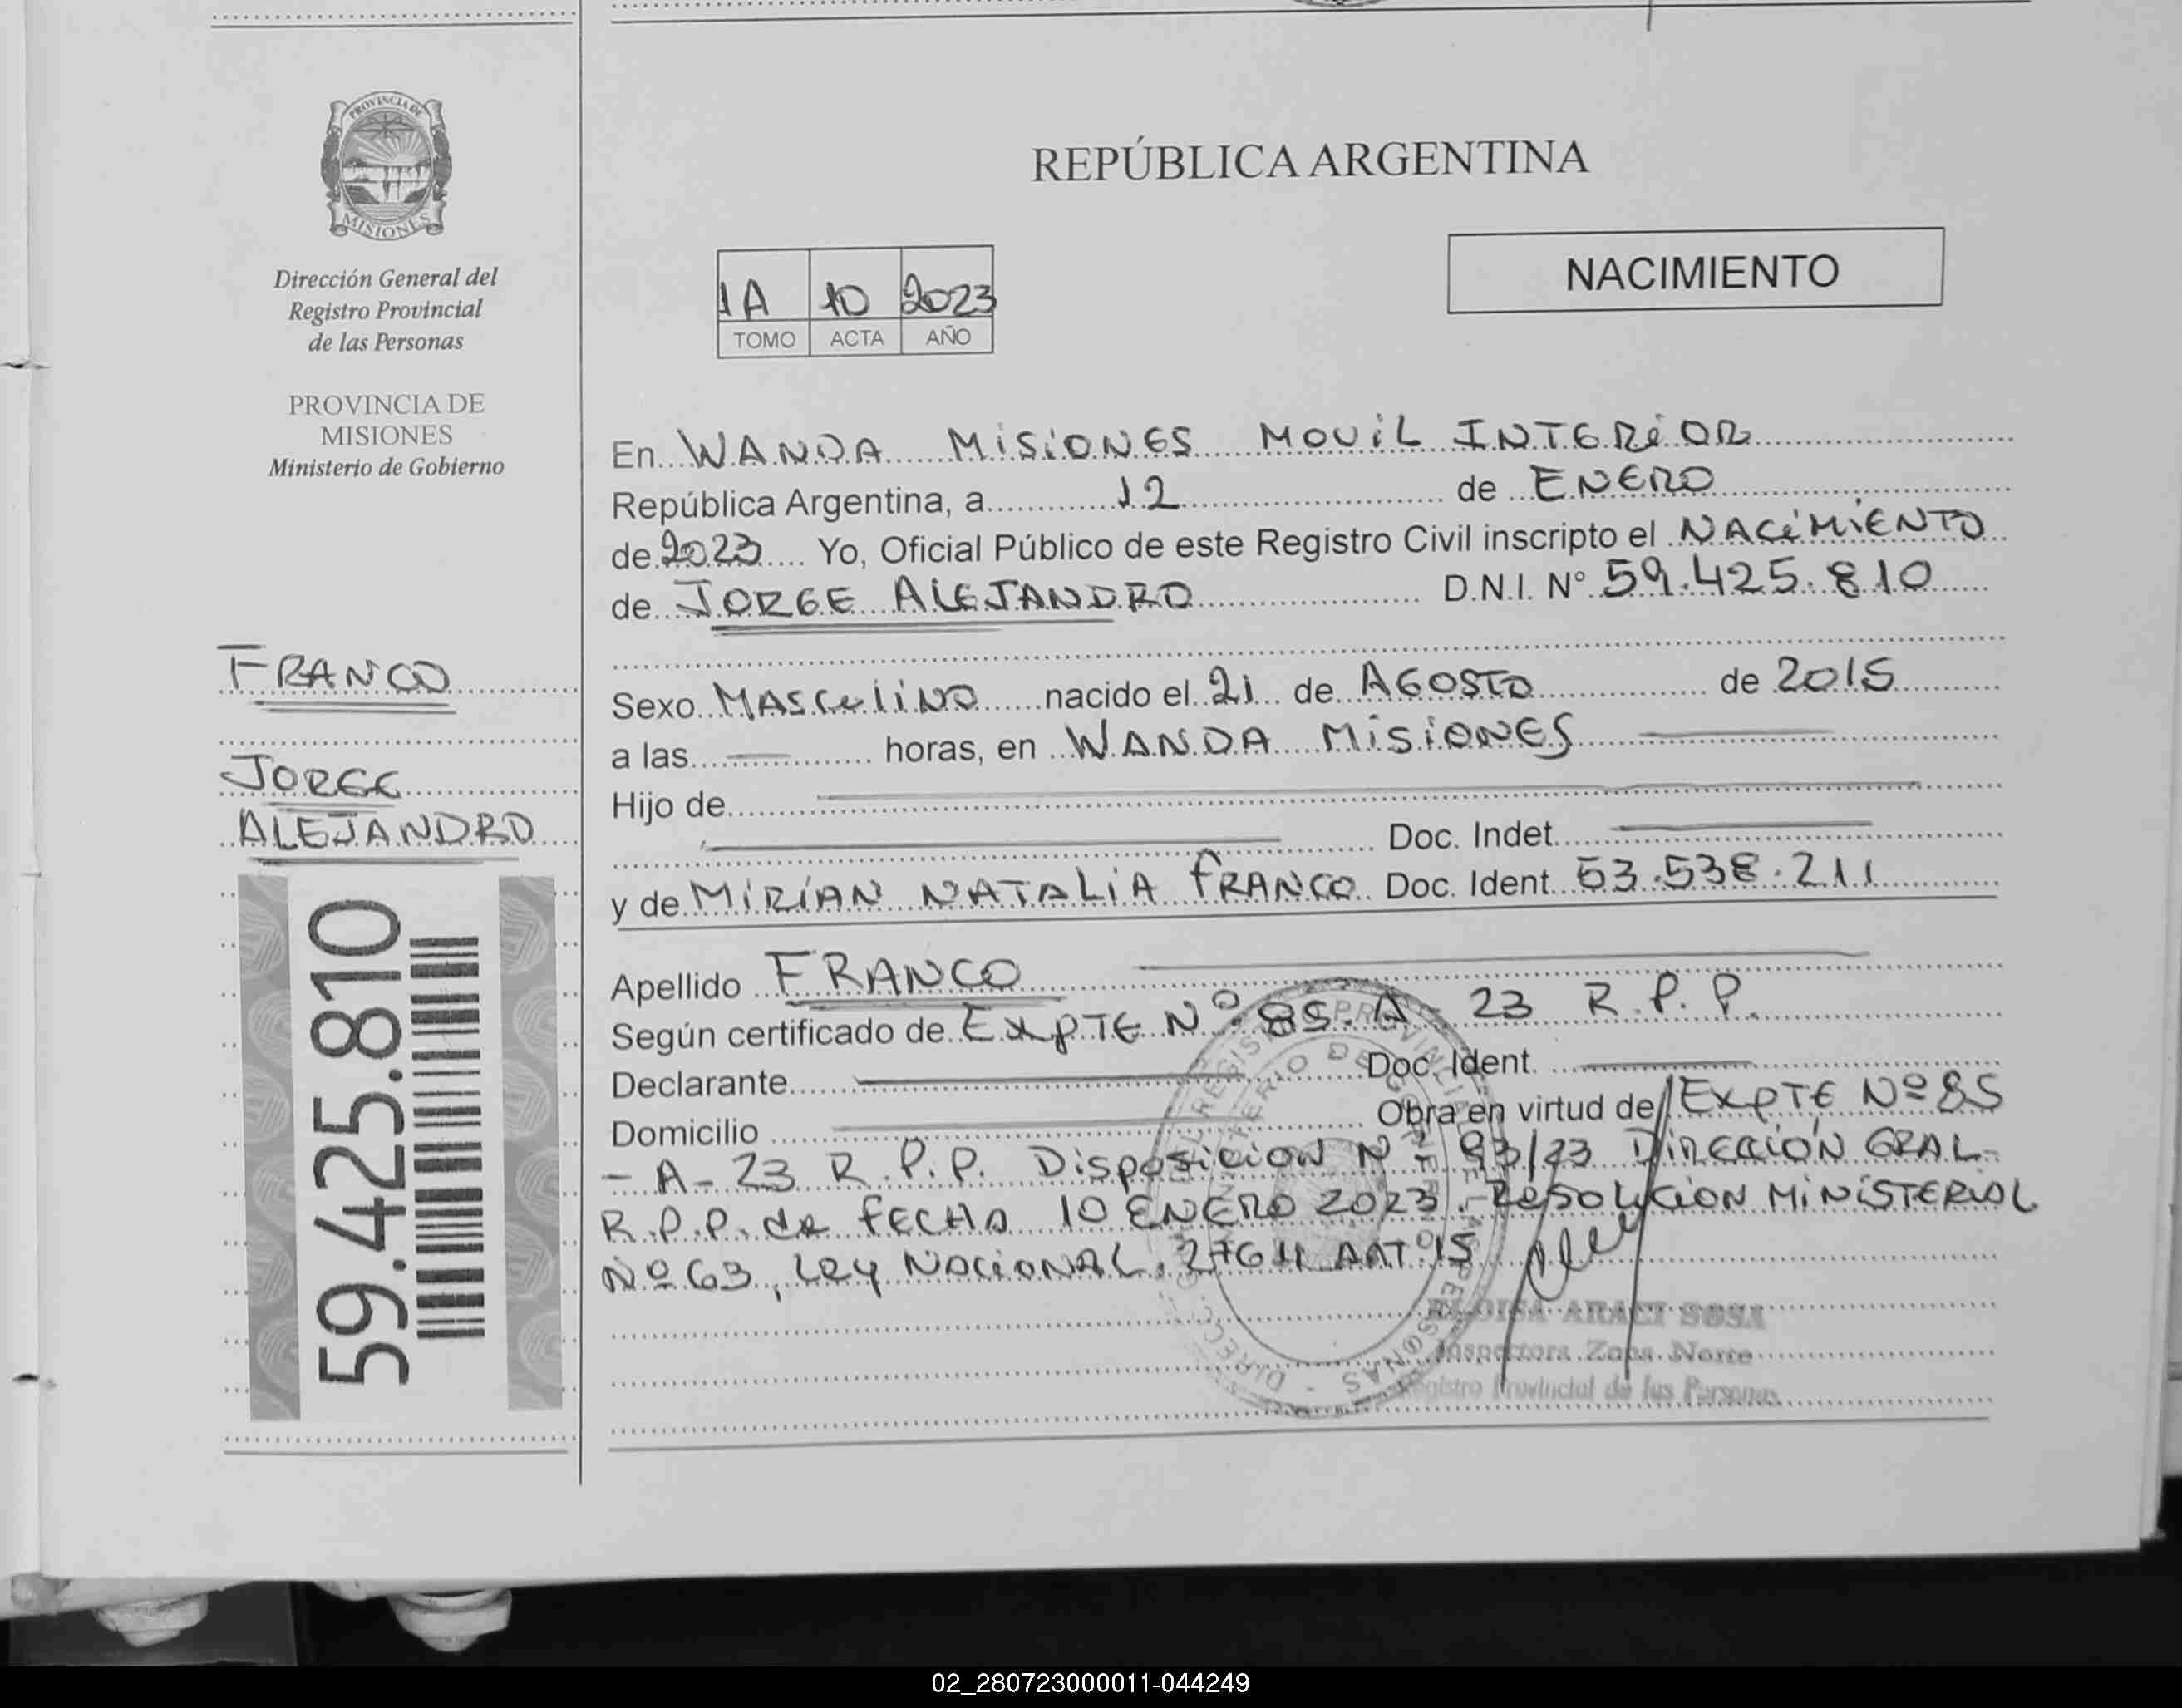 PROVINCIA DE
MISIONES
Dirección General del
Registro Provincial
de las Personas
PROVINCIA DE
MISIONES
Ministerio de Gobierno
FRANCO
JORGE
ALEJANDRO
59.425.810
REPÚBLICA ARGENTINA
NACIMIENTO
1A 10 2023
TOMO ACTA AÑO
En WANDA MISIONES MOVIL INTERIOR
República Argentina, a 12 de ENERO
de 2023 Yo, Oficial Público de este Registro Civil inscripto el NACIMIENTO
de JORGE ALEJANDRO D.N.I. N° 59.425.810
Sexo MASCULINO nacido el 21 de AGOSTO de 2015
a las horas, en WANDA MISIONES
Hijo de
Doc. Indet.
y de MIRIAN NATALIA FRANCO Doc. Ident. 53.538.211
Apellido FRANCO
Según certificado de EXPTE Nº 85. A - 23 R.P.P.
Declarante Doc. Ident.
Domicilio Obra en virtud de EXPTE Nº 85
- A - 23 R.P.P. DISPOSICION Nº 93/23 DIRECCION GRAL
R.P.P. de FECHA 10 ENERO 2023. RESOLUCION MINISTERIAL
Nº 63, LEY NACIONAL. 27611 ART º15
ELOISA ARACI SOSA
Inspectora Zona Norte
Registro Provincial de las Personas
02_280723000011-044249